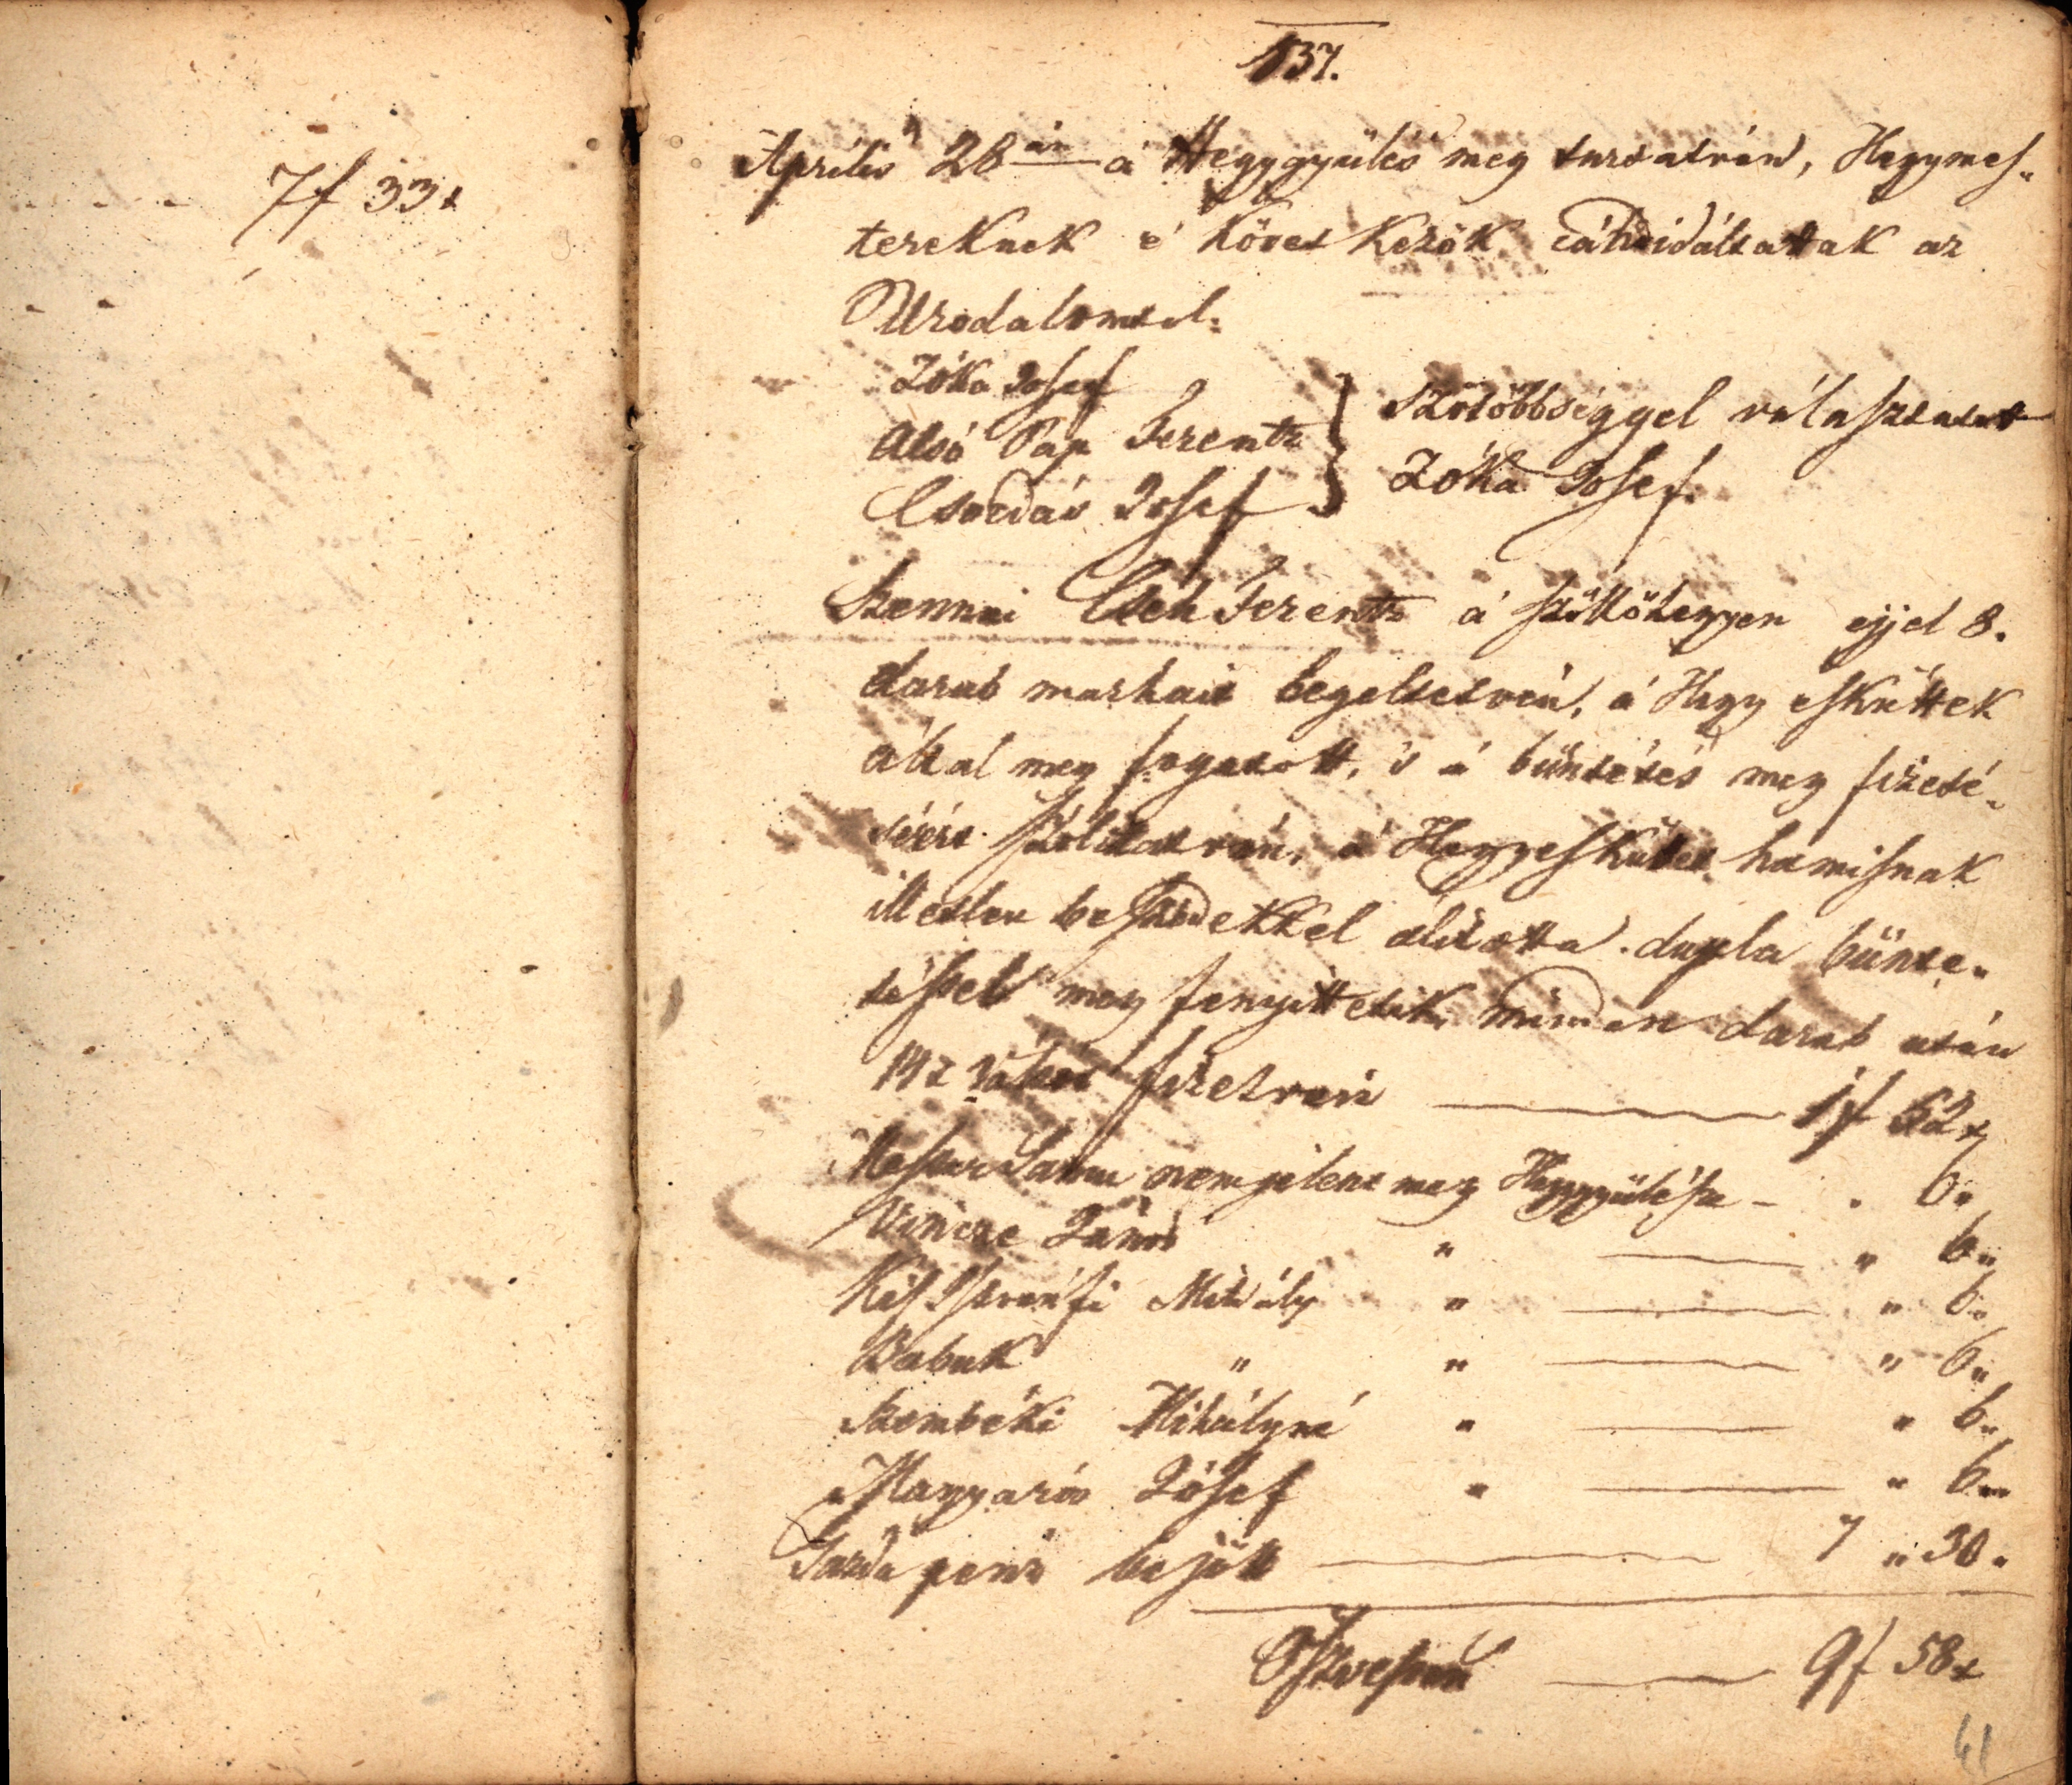 7f 33x
137.
Április 28án a' Hegygyülés meg tartatván, Hegymes„
tereknek é követKezöK cándidáltattak az
Uradalomtol:
Zóka Josef
Alsó Pap Ferentz
Csordás Josef
} Szótöbbséggel választatott
Zóka Josef.
Szennai Cseh Ferentz a' szöllöhegyen éjjel 8.
darab marhait legeltetvén, a' Hegy esKüttek
által meg fogatott, 's a' büntetés meg fizeté„
séért szólítatván, a' HegyesKüttet hamisnak
illetlen beszédeKKel állította. dupla bünte„
téssel meg fenyittetik, minden darab után
14x váltot fizetvén — 1f 52x
Samu nem jelent meg Hegygyülésre - „ 6„
Vincze János „ — „ 6„
Kis Istvánfi Mihály „ — „ 6„
Babuk „ „ — „ 6„
Szombéki Mihályné „ — „ 6„
Magyarós Jósef „ — „ 6„
Garda pénz bejött — 7 „ 30„
Öszvesen — 9f 58x
61